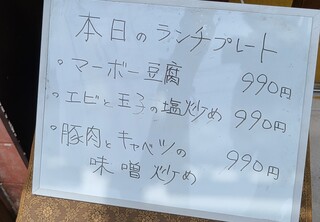 本日のランチプレート
・マーボー豆腐 990円
・エビと玉子の塩炒め 990円
・豚肉とキャベツの 990円
味噌炒め